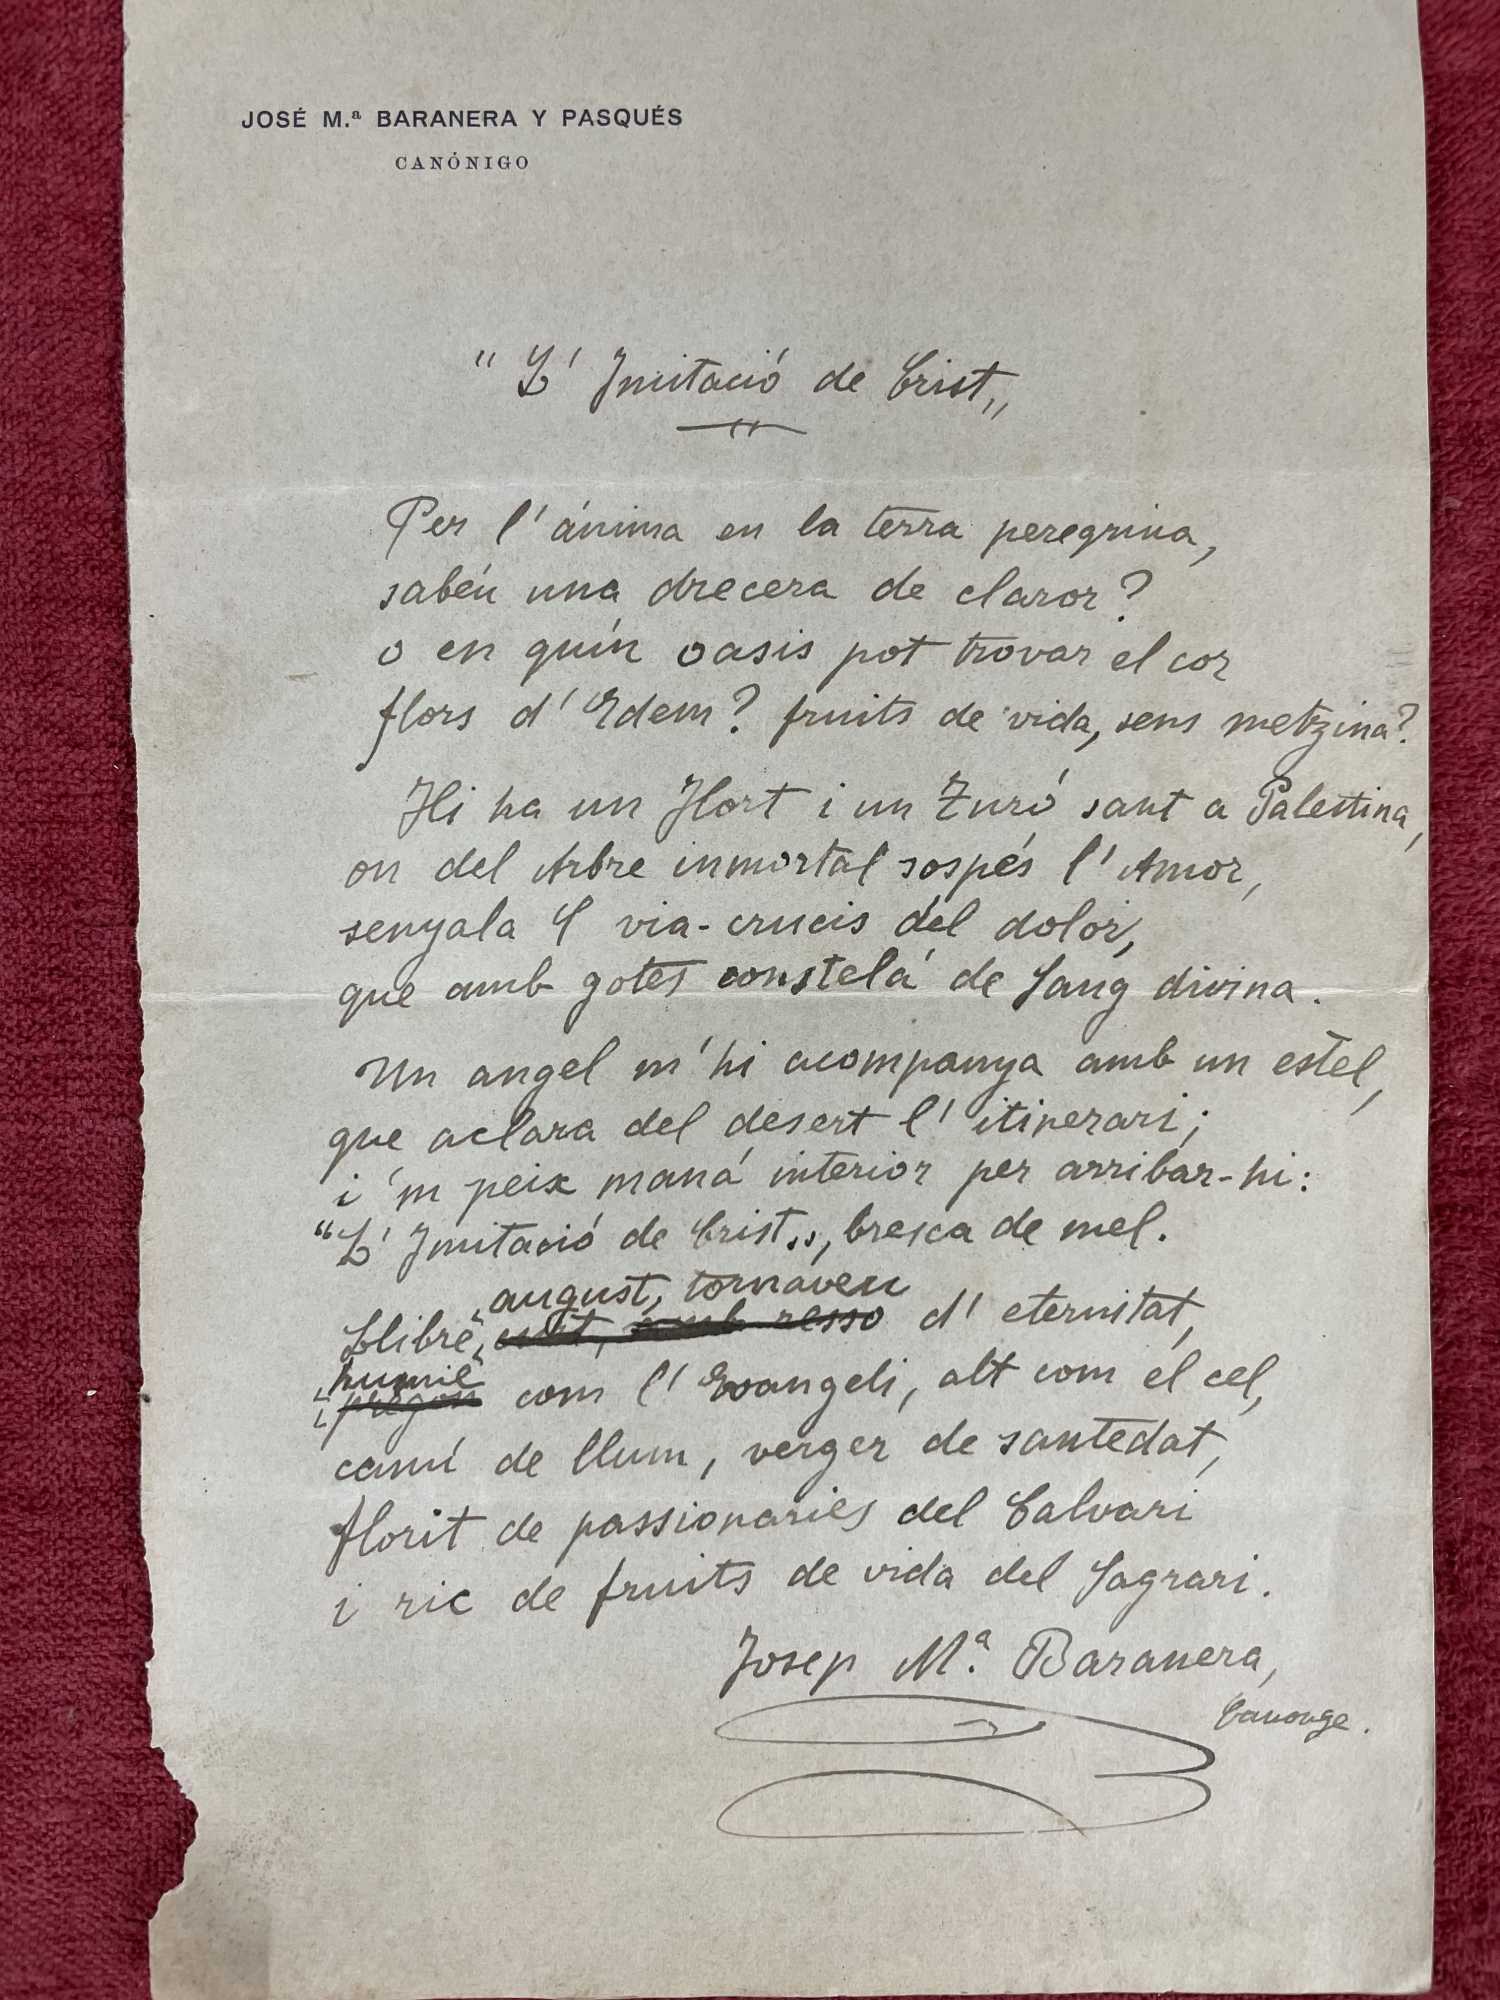 JOSÉ M.ª BARANERA Y PASQUÉS
CANÓNIGO
"L' Imitació de Crist„
Per l'ánima en la terra peregrina,
sabéu una drecera de claror?
o en quín oasis pot trovar el cor
flors d'Edem? fruits de vida, sens metzina?
Hi ha un Hort i un Turó sant a Palestina,
on del Arbre inmortal sospés l'Amor,
senyala 'l via-crucis del dolor,
que amb gotes constelá de Sang divina.
Un angel m'hi acompanya amb un estel,
que aclara del desert l'itinerari;
i 'm peix maná interior per arribar-hi:
"L'Imitació de Crist„, bresca de mel.
august, tornaveu
Llibre, amb resso d'eternitat,
humil
i pregon com l'Evangeli, alt com el cel,
camí de llum, verger de santedat,
florit de passionaries del Calvari
i ric de fruits de vida del Sagrari.
Josep M.ª Baranera,
Canonge.